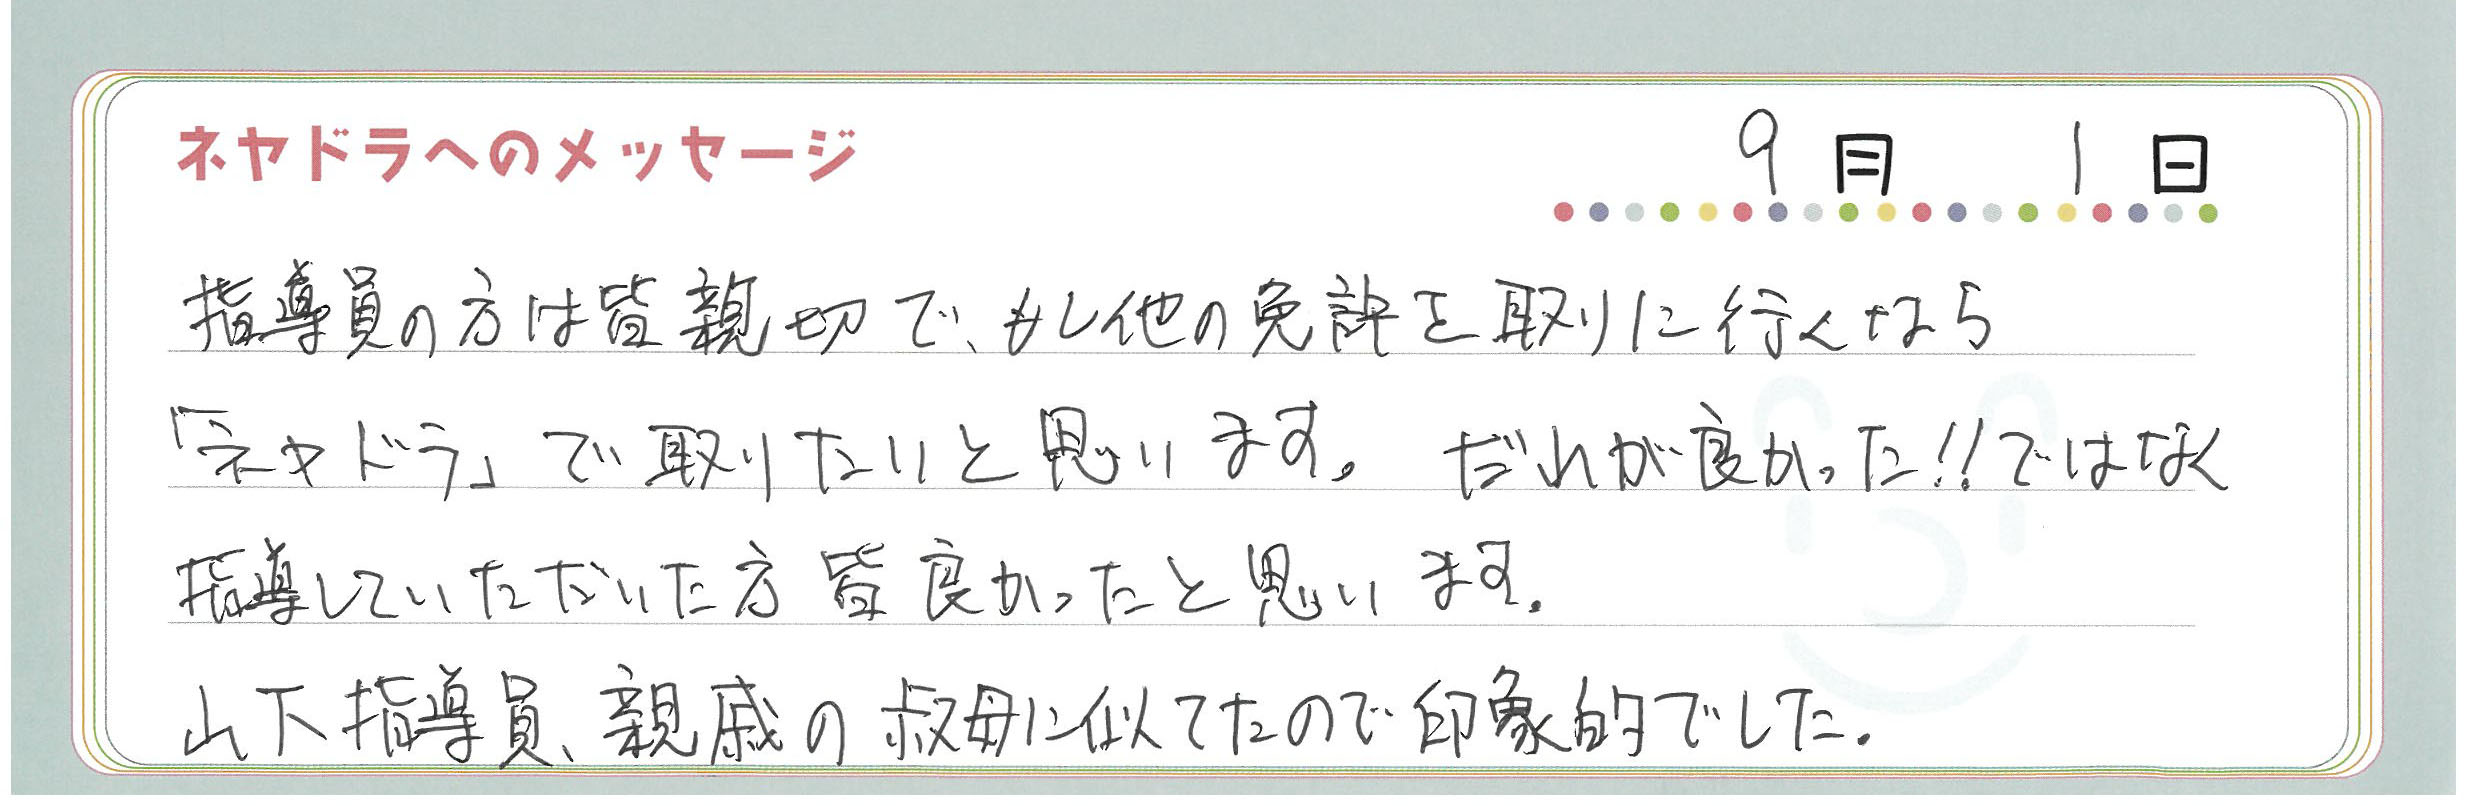 ネヤドラへのメッセージ
9月 1日
指導員の方は皆親切で、もし他の免許を取りに行くなら
「ネヤドラ」で取りたいと思います。 だれが良かった!!ではなく
指導していただいた方 皆良かったと思います。
山下指導員、親戚の叔母に似てたので印象的でした。